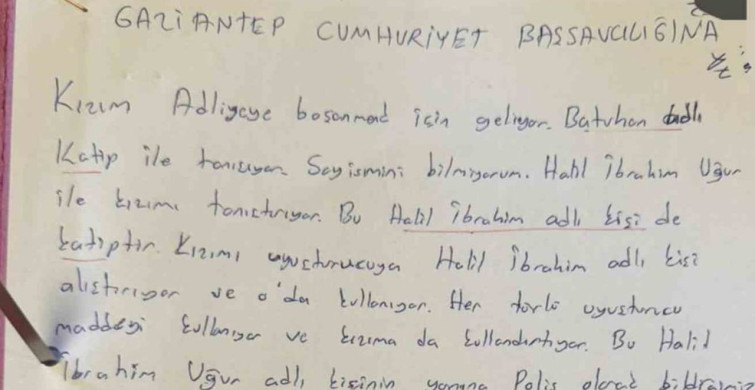 GAZİANTEP CUMHURİYET BASSAVCILIĞINA
Kızım Adliyeye bosanmak için geliyor. Batuhan adlı
Katip ile tanısıyor. Soyismini bilmiyorum. Halil İbrahim Uğur
ile kızımı tanıctırıyor. Bu Halil İbrahim adlı kişi de
katiptir. Kızımı uyusturucuya Halil İbrahim adlı kisi
alıstırıyor ve o'da kullanıyor. Her türlü uyusturucu
maddeyi kullanıyor ve kızıma da kullandırtıyor. Bu Halil
İbrahim Uğur adlı kisinin yanına Polis olarak